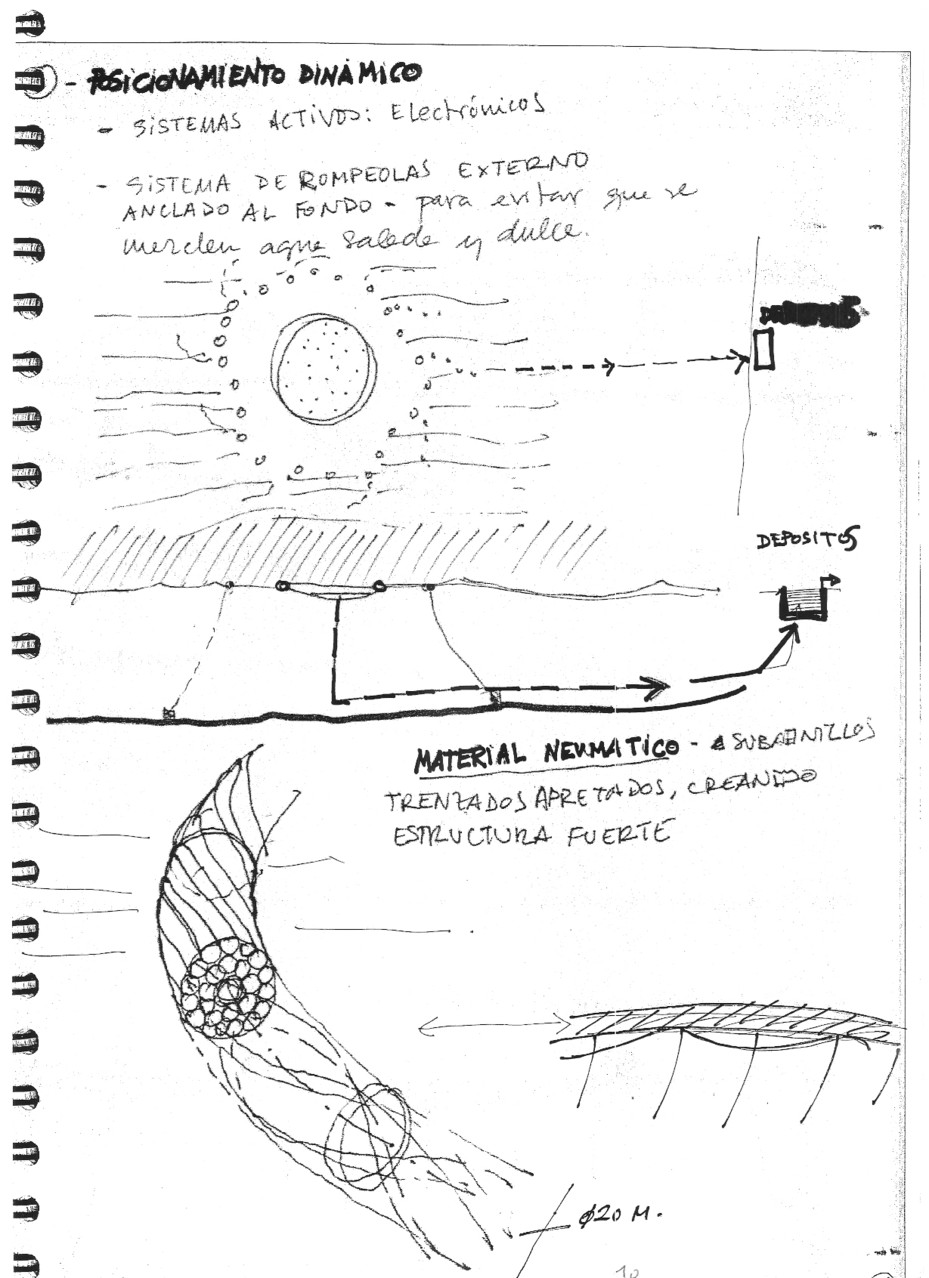 - POSICIONAMIENTO DINÁMICO
- SISTEMAS ACTIVOS: Electrónicos
- SISTEMA DE ROMPEOLAS EXTERNO
ANCLADO AL FONDO - para evitar que se
mezclen agua salada y dulce.
DEPOSITOS
MATERIAL NEUMATICO - SUBANILLOS
TRENZADOS APRETADOS, CREANDO
ESTRUCTURA FUERTE
ø20 M.